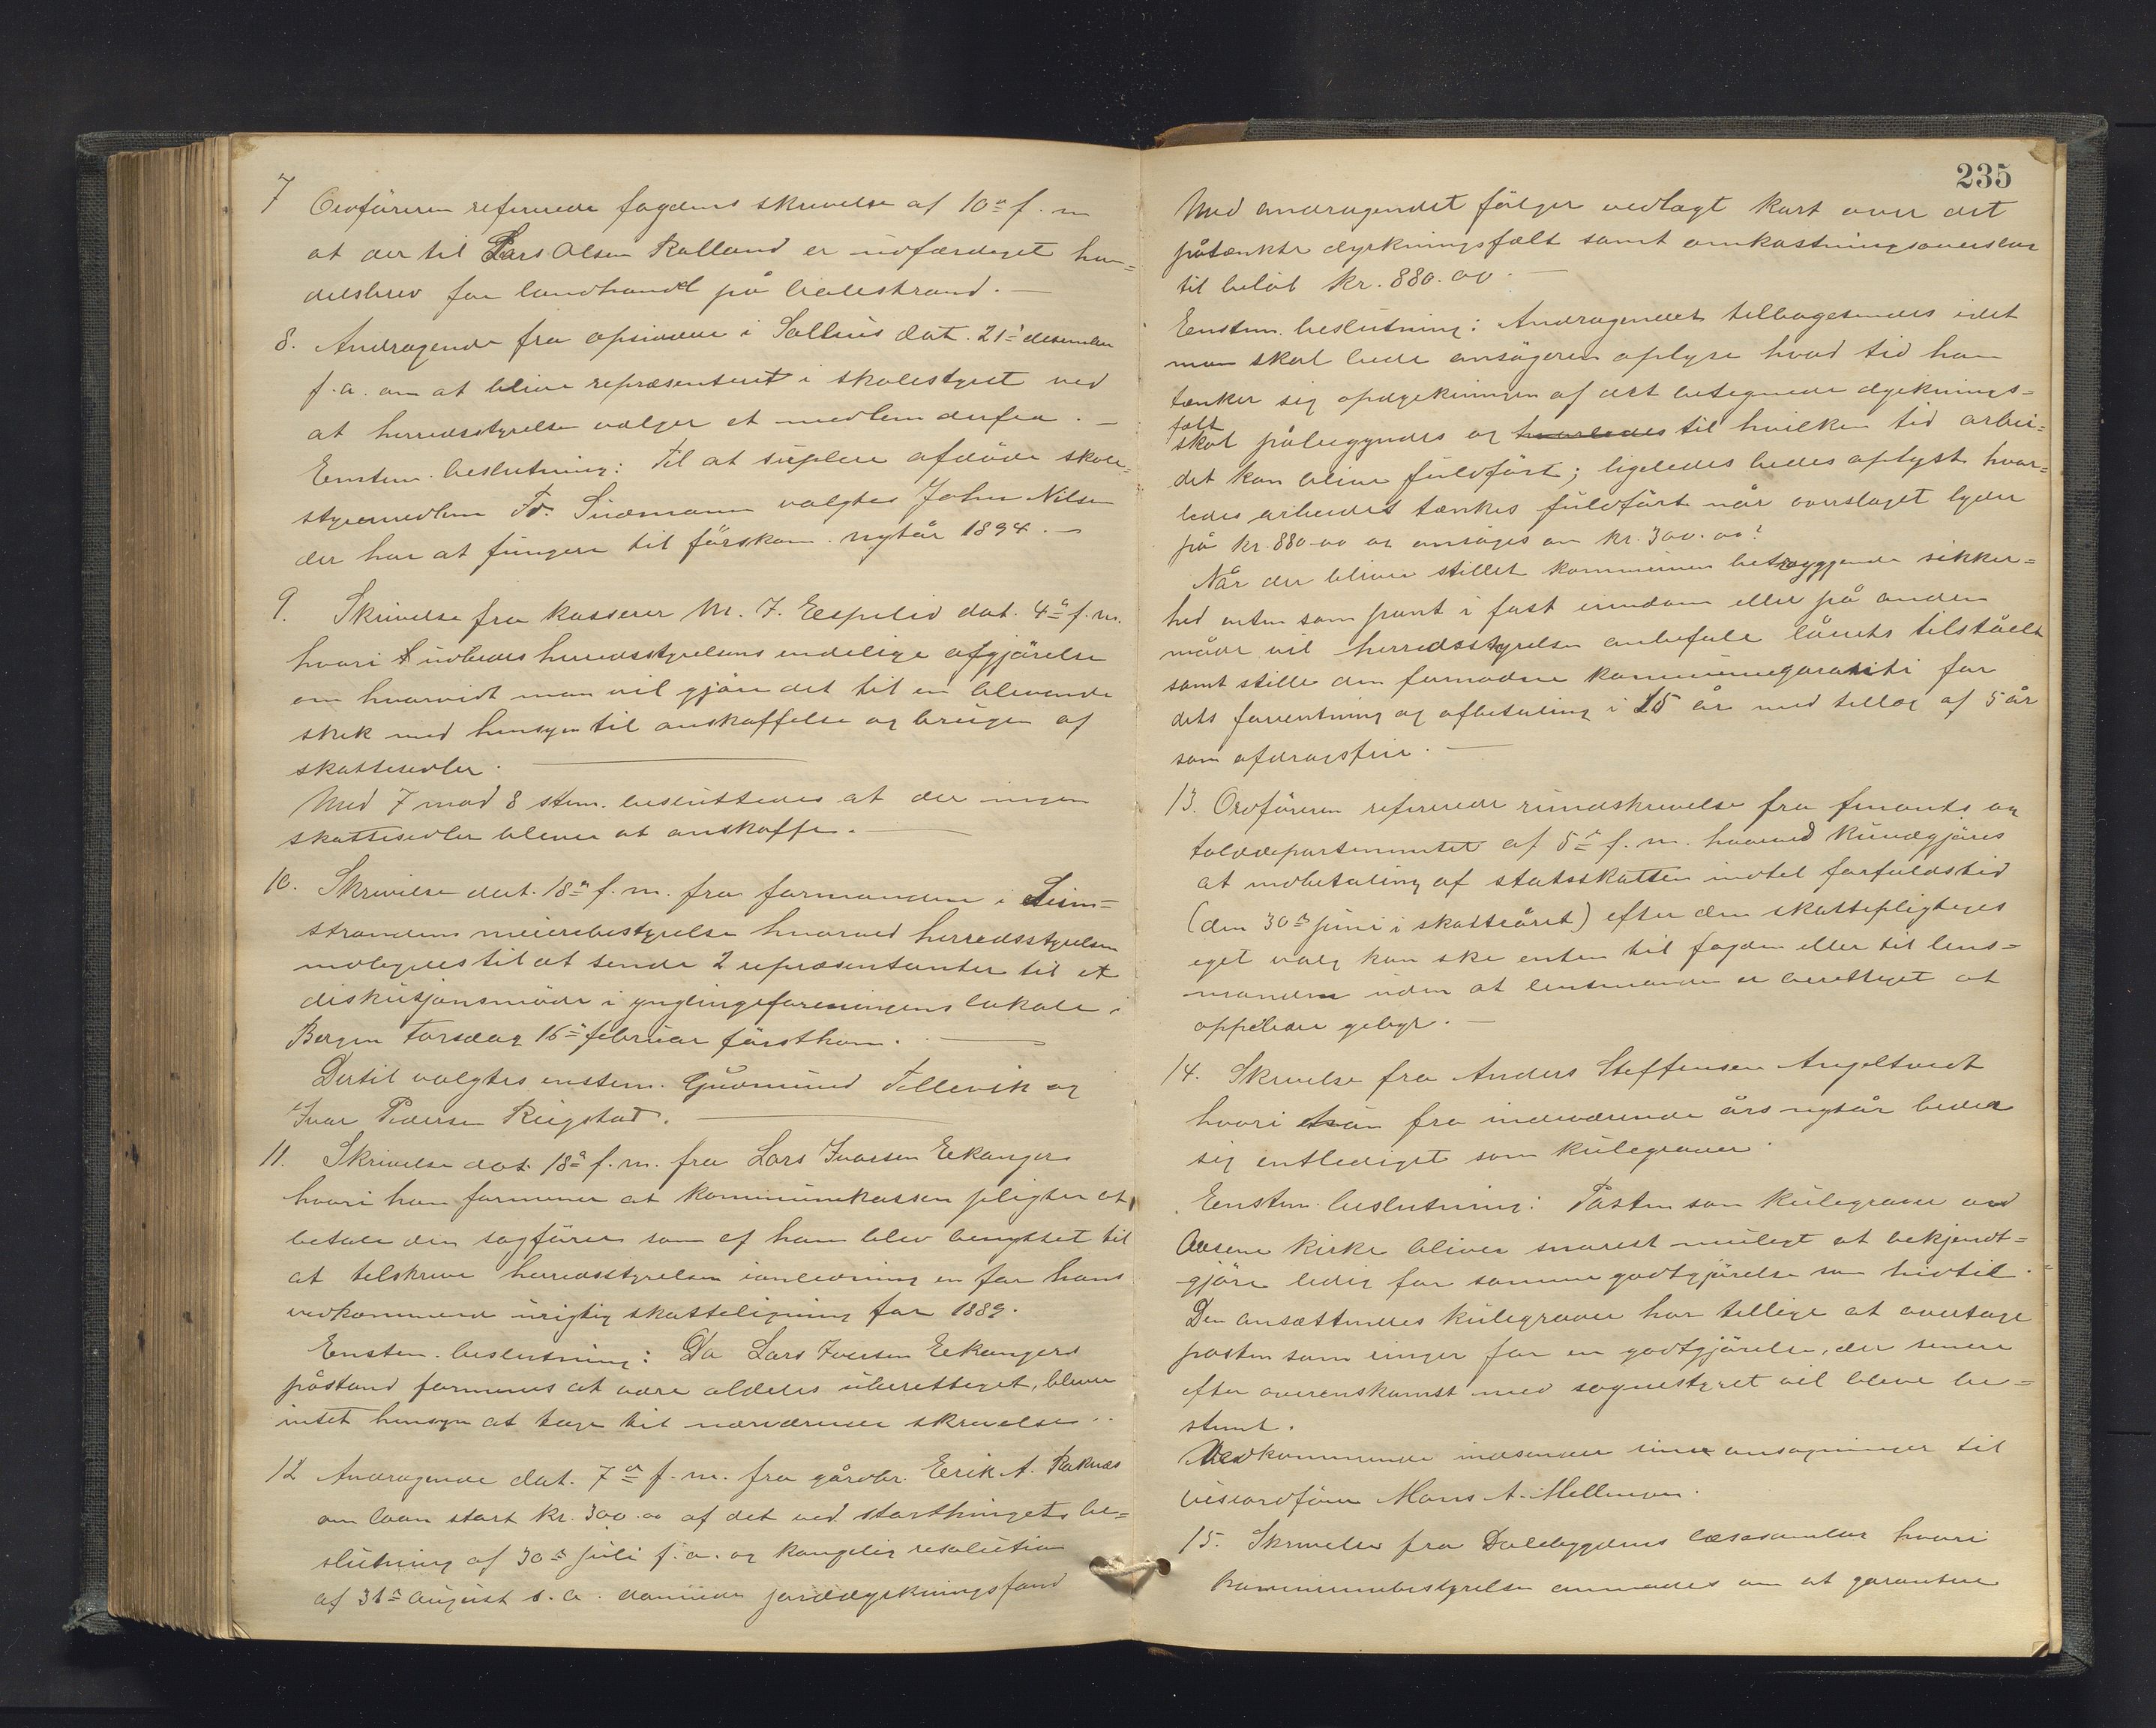 7 Ordføreren refererede fogdens skrivelse af 10de f. m
at der til Lars Olsen Rolland er udfærdiget han=
delsbrev for landhandel på
8. Andragende fra opsidderne i Salhus dat. 21de desember
f. a. om at blive repræsenteret i skolestyret ved
at herredsstyrelsen vælger et medlem derfra. —
Enstem. beslutning: Til at suplere afdøde skole=
styremedlem Fr. Sudmann valgtes John Nilsen
der har at fungere til førstkom. nytår 1894. —
9. Skrivelse fra kasserer M. J. Eespelid dat. 4de f. m.
hvori udbedes herredsstyrelsens endelige afgjørelse
om hvorvidt man vil gjøre det til en blivende
skik med hensyn til anskaffelse og brugen af
skattesedler. —
Med 7 mod 8 stem. besluttedes at der ingen
skattesedler bliver at anskaffe. —
10. Skrivelse dat. 18de f. m. fra formanden i Seim=
strandens meieribestyrelse hvorved herredsstyrelsen
indbydes til at sende 2 repræsentanter til et
diskusjonsmøde i ynglingeforeningens lokale i
Bergen Torsdag 16de februar førstkom. —
Dertil valgtes enstem. Gudmund Tellevik og
Ivar Pedersen Rigstad. —
11. Skrivelse dat. 18de f. m. fra Lars Ivarsen Eekanger
hvori han formener at kommunekassen pligter at
betale den sagfører som af ham blev benyttet til
at tilskrive herredsstyrelsen ianledning en for hans
vedkommende urigtig skatteligning for 1889.
Enstem. beslutning: Da Lars Iversen Eekangers
påstand formenes at være aldeles uberettiget, bliver
intet hensyn at tage til nærværende skrivelse.
12 Andragende dat. 7de f. m. fra gårdbr. Eerik A. Raknes
om laan stort kr. 300.00 af det ved storthingets be=
slutning af 30te juli f. a. og kongelig resolution
af 31te august s. a. dannede jorddyrkningsfond
235
Med andragendet følger vedlagt kart over det
påtænkte dyrkningsfælt samt omkostningsoverslag
til beløb kr. 880.00. —
Eenstem. beslutning: Andragendet tilbagesendes idet
man skal bede ansøgeren oplyse hvad tid han
tænker sig opdyrkningen af det betegnede dyrknings=
fælt
skal påbegyndes og hvorledes til hvilken tid arbei=
det kan blive fuldført; ligeledes bedes oplyst hvor=
ledes arbeidet tænkes fuldført når overslaget lyder
på kr. 880.00 og ansøges om kr. 300.00?
Når der bliver stillet kommunen betryggende sikker=
hed enten som pant i fast eiendom eller på anden
måde vil herredsstyrelsen anbefale lånets tilståelse
samt stille den fornødne kommunegaranti for
dets forrentning og afbetaling i 15 år med tillæg af 5 år
som afdragsfrie. —
13. Ordføreren refererede rundskrivelse fra finants og
tolddepartementet af 5te f. m. hvorved kundgjøres
at indbetaling af statsskatten indtil forfaldstid
(den 30te juni i skatteåret) efter den skattepligtiges
eget valg kan ske enten til fogden eller til lens=
manden uden at lensmanden er berettiget at
oppebære gebyr. —
14. Skrivelse fra Anders Steffensen Angeltveit
hvori han fra indeværende års nytår beder
sig entlediget som kulegraver.
Eenstem. beslutning: Posten som kulegraver ved
Aasene kirke bliver snarest muligt at bekjendt=
gjøre ledig for samme godtgjørelse som hidtil.
Den ansættendes kulegraver har tillige at overtage
posten som ringer for en godtgjørelse, der senere
efter overenskomst med sognestyret vil blive be=
stemt.
Vedkommende indsender sine ansøgninger til
viseordfører Mons A. Mellingen.
15. Skrivelse fra Dalebygdens læsesamlag hvori
kommunebestyrelsen anmodes om at garantere